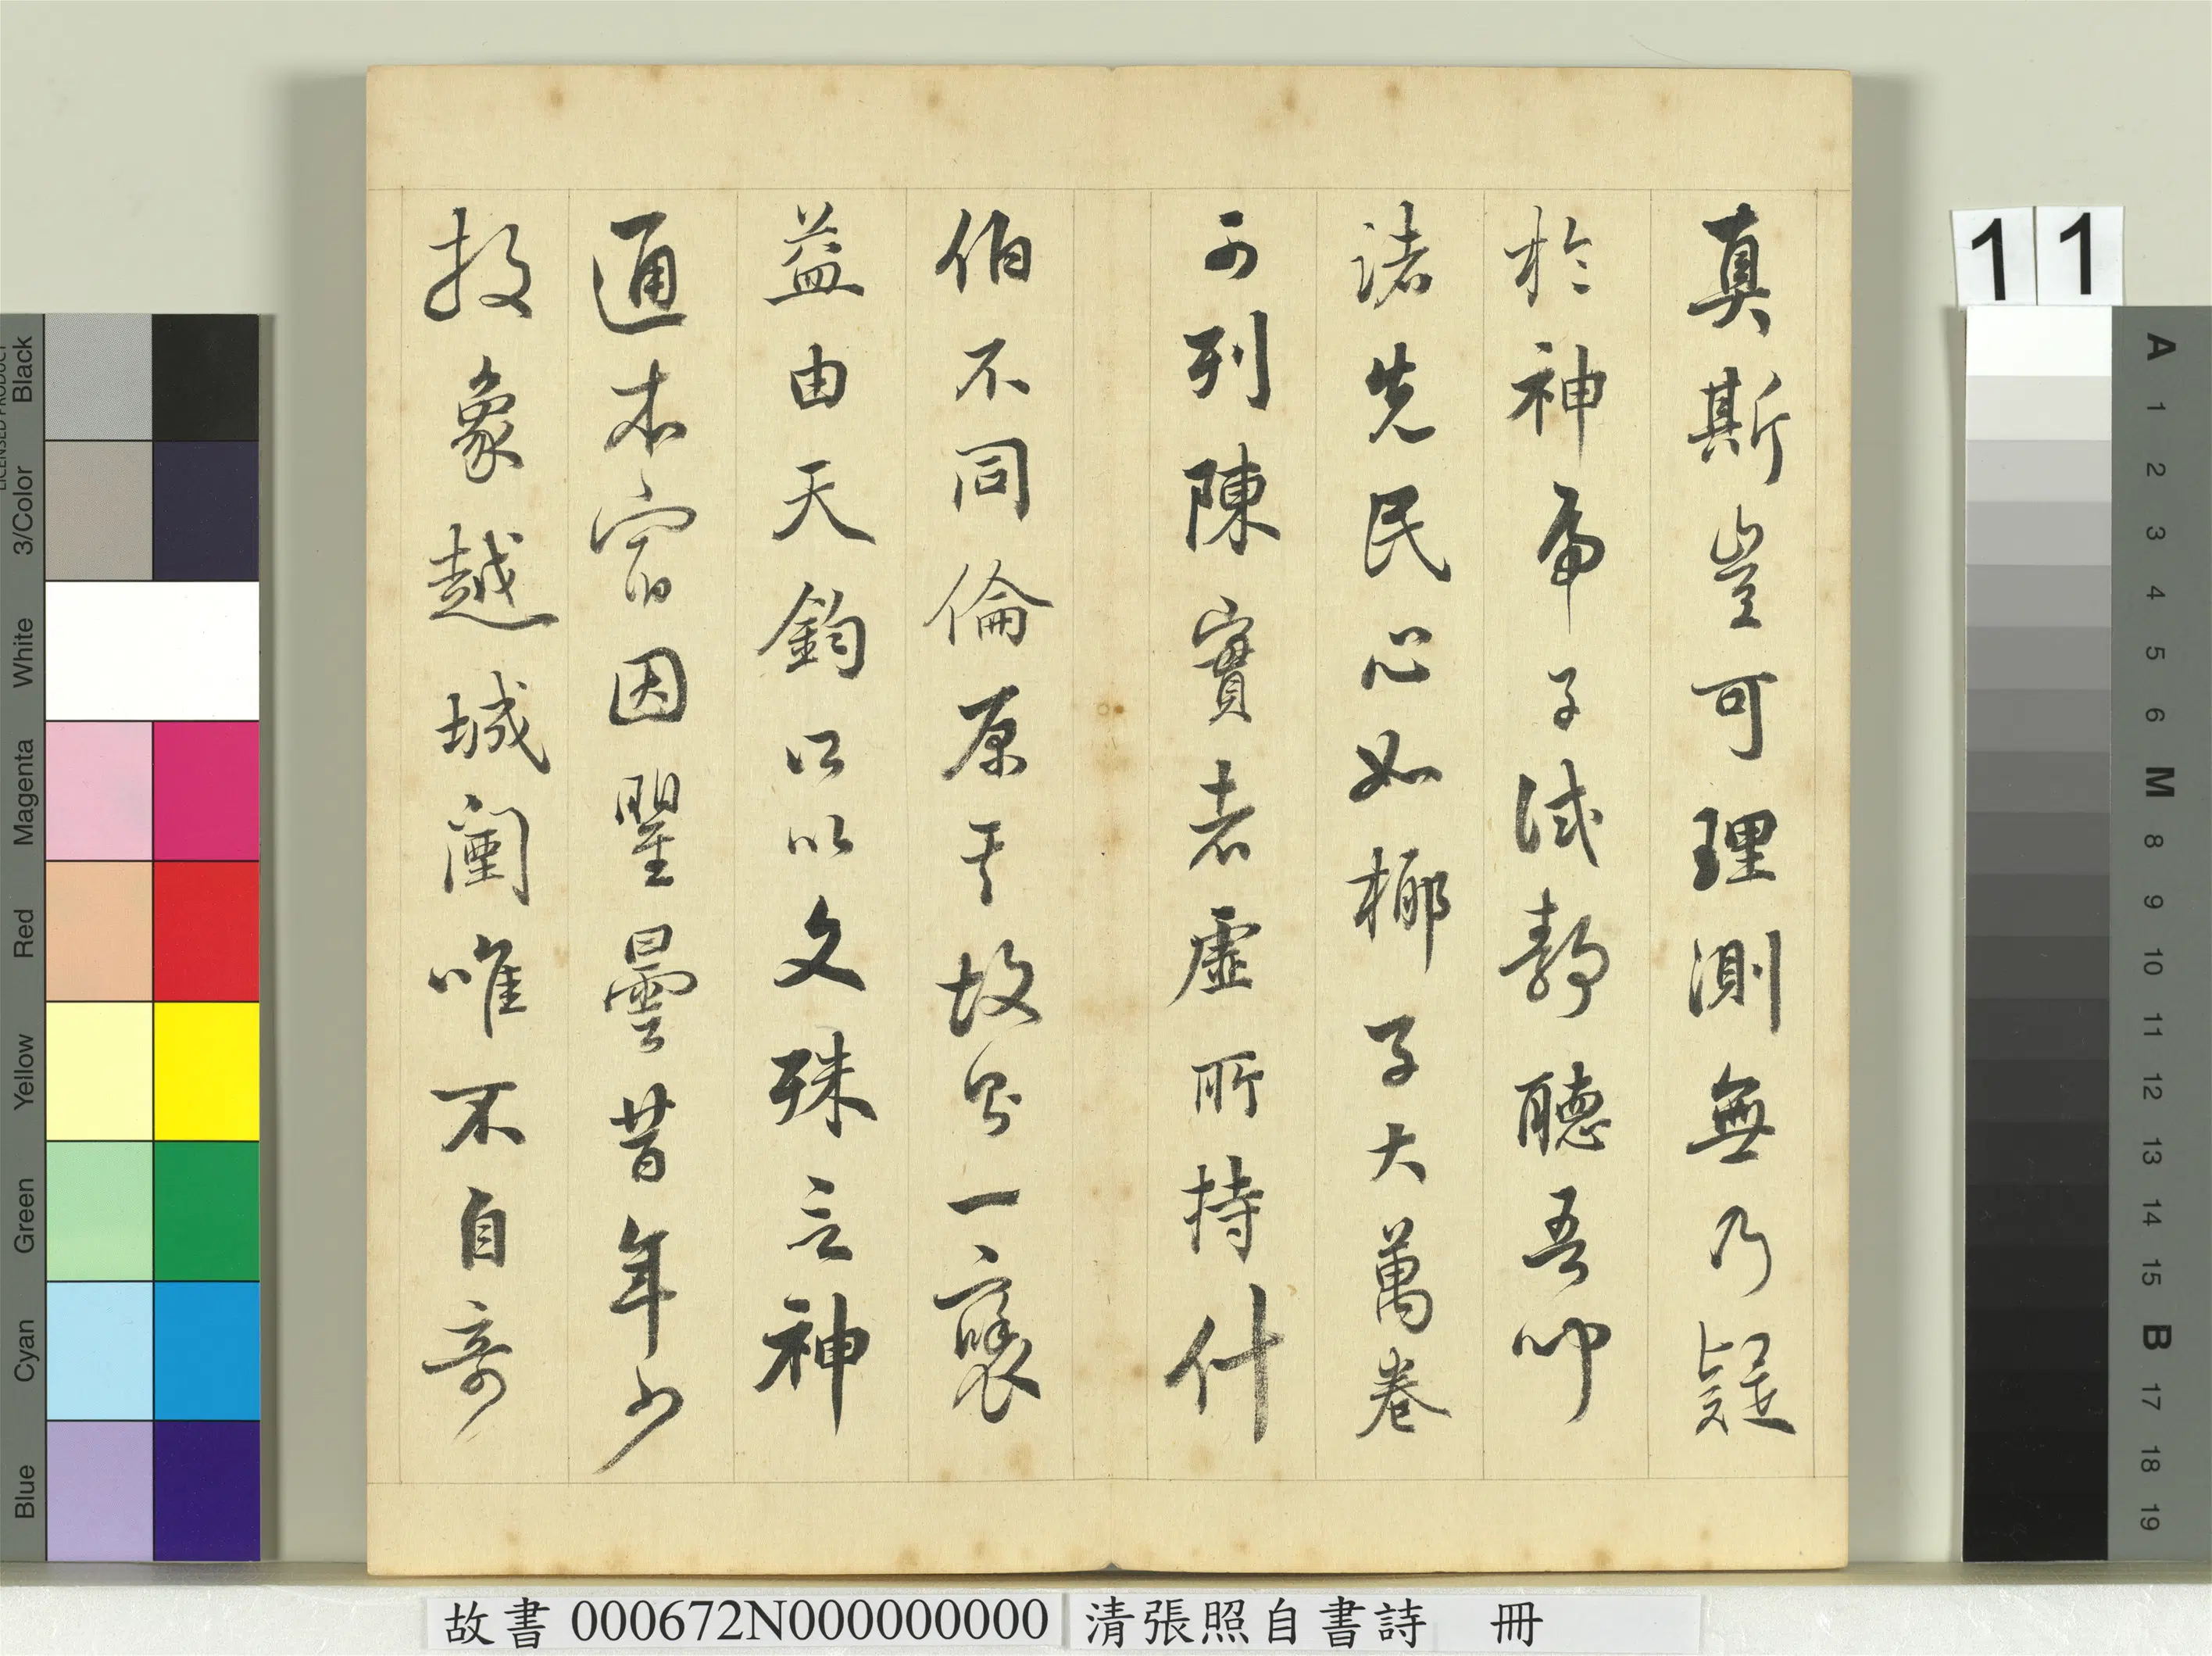 真斯豈可理測無乃疑
於神乎子試靜聽吾叩
諸先民心如椰子大萬卷
可列陳實者虛所持什
伯不同倫原其故一褒
益由天鈞只以文殊言神
通本宿因瞿曇昔年少
投象越城闉唯不自奇
11
LICENSED PRODUCT
Black
3/Color
White
Magenta
Red
Yellow
Green
Cyan
Blue
A 1 2 3 4 5 6 M 8 9 10 11 12 13 14 15 B 17 18 19
故書 000672N000000000 清張照自書詩 冊